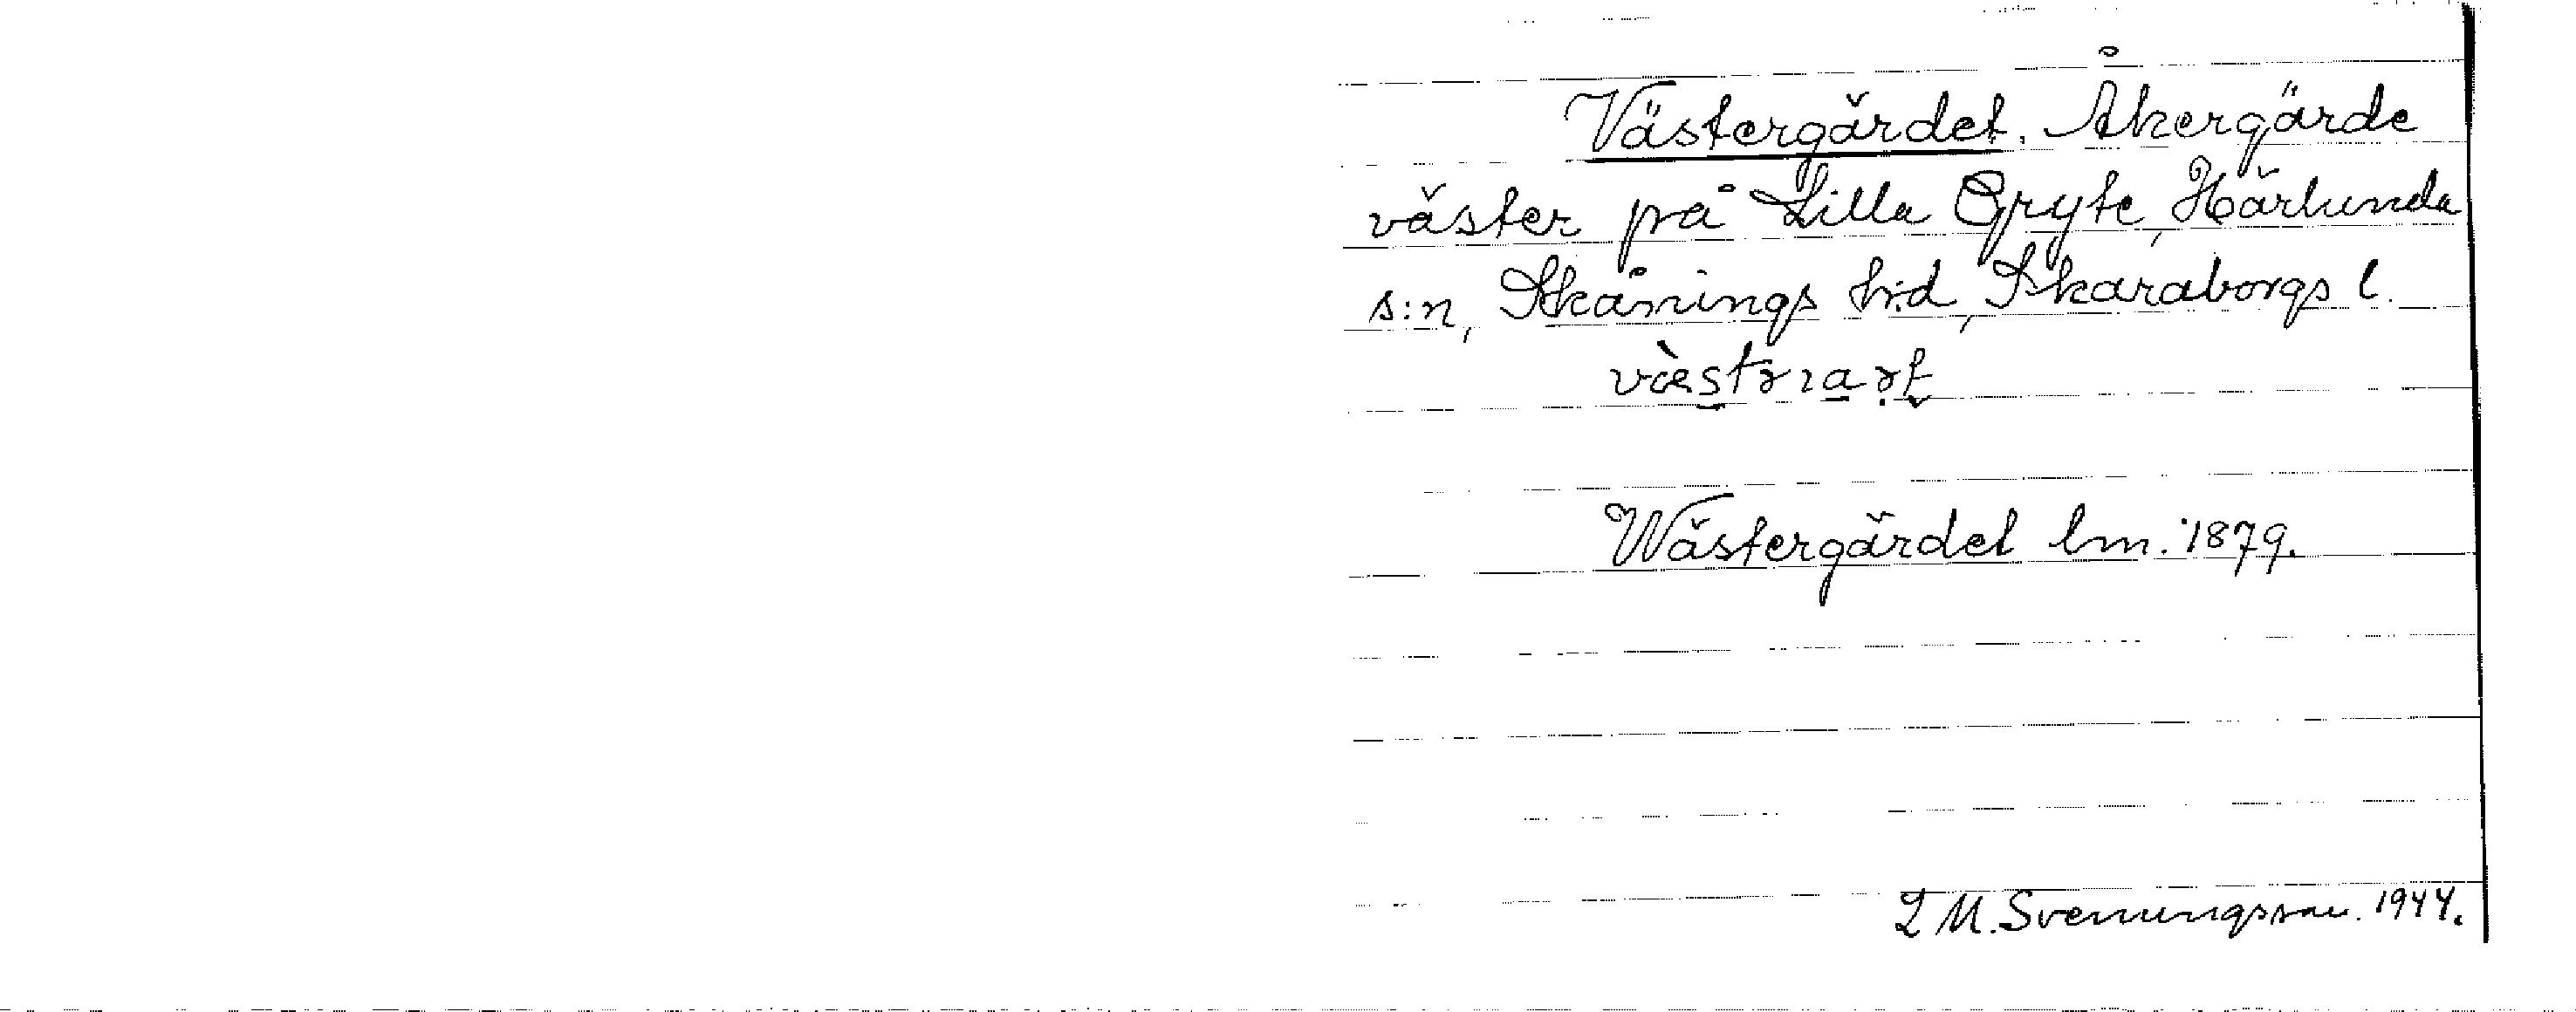 Västergärdet. Åkergärde
väster på Lilla Gryte, Härlunda
s:n, Skånings h:d, Skaraborgs l.
Wästergärdet lm. 1879.
L M. Svenungsson. 1944.